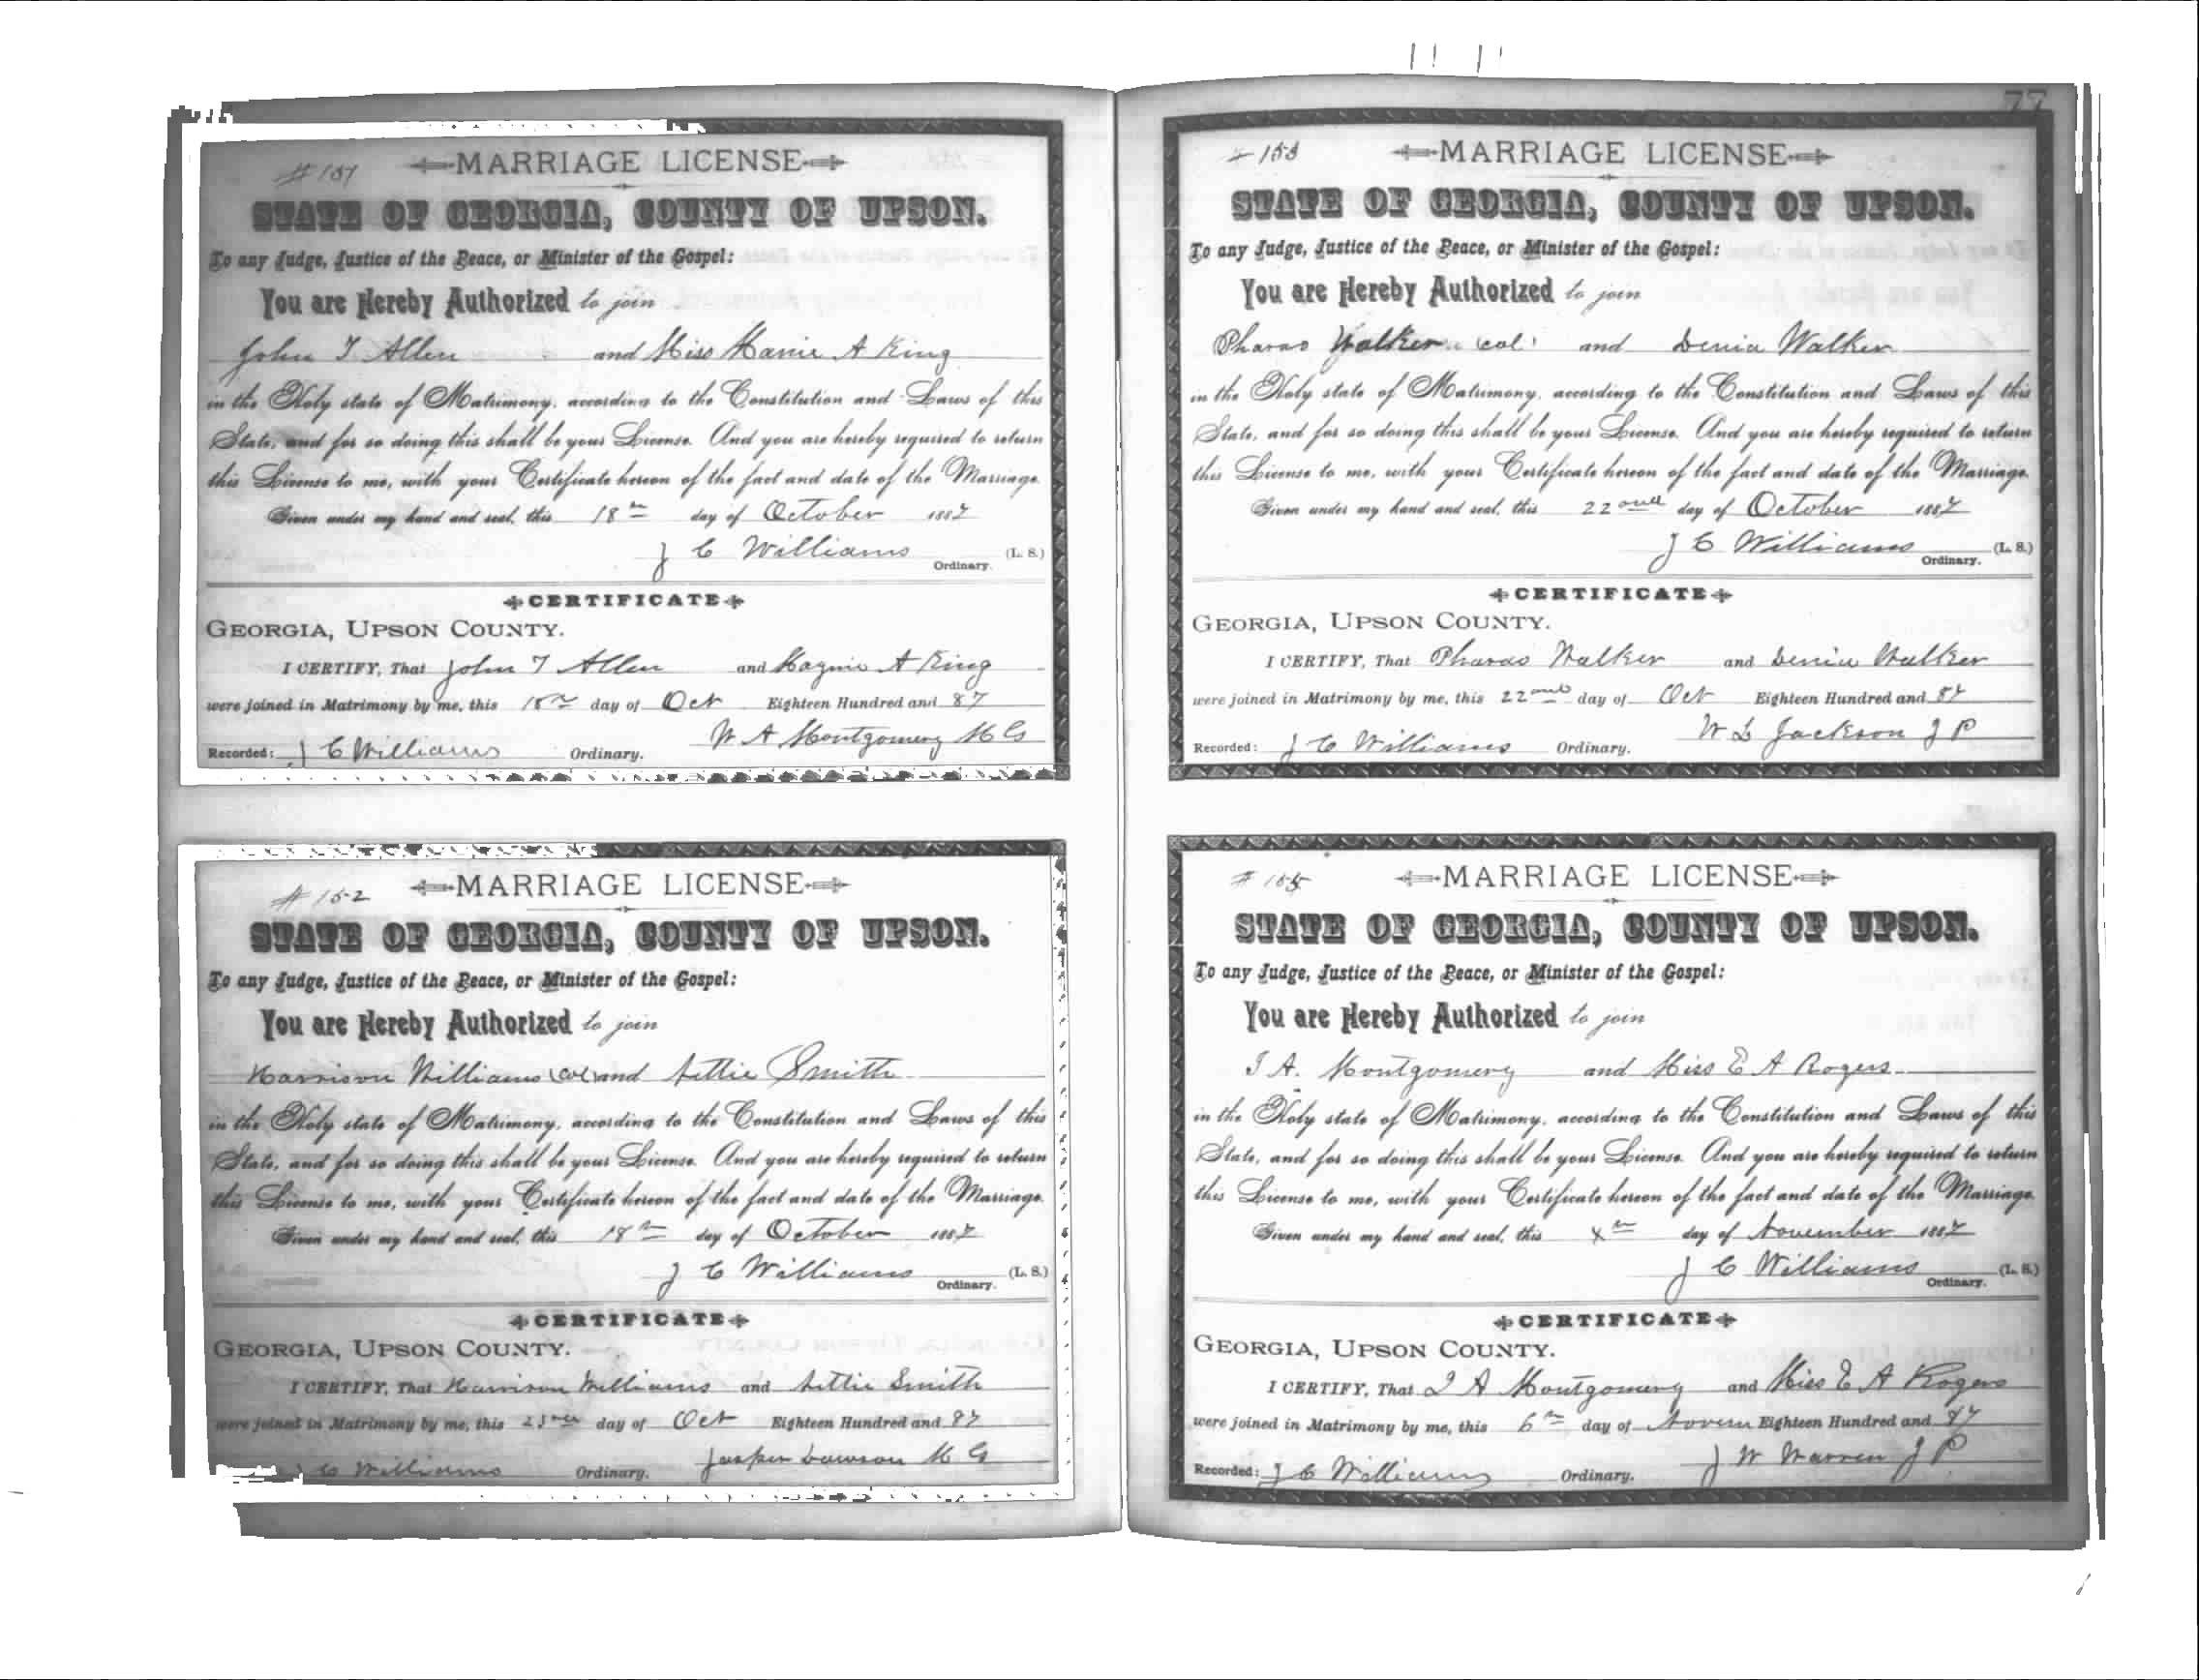 # 151
MARRIAGE LICENSE
STATE OF GEORGIA, COUNTY OF UPSON.
To any Judge, Justice of the Peace, or Minister of the Gospel:
You are Hereby Authorized to join
John T Allen and Miss A King
in the Holy state of Matrimony, according to the Constitution and Laws of this
State, and for so doing this shall be your License. And you are hereby required to return
this License to me, with your Certificate hereon of the fact and date of the Marriage.
Given under my hand and seal, this 18th day of October 1887
J C Williams (L. S.)
Ordinary.
CERTIFICATE
GEORGIA, UPSON COUNTY.
I CERTIFY, That John T Allen and A King
were joined in Matrimony by me, this 18th day of Oct Eighteen Hundred and 87
W A Montgomery M G
Recorded: J C Williams Ordinary.
# 152
MARRIAGE LICENSE
STATE OF GEORGIA, COUNTY OF UPSON.
To any Judge, Justice of the Peace, or Minister of the Gospel:
You are Hereby Authorized to join
Harrison Williams (col) and Smith
in the Holy state of Matrimony, according to the Constitution and Laws of this
State, and for so doing this shall be your License. And you are hereby required to return
this License to me, with your Certificate hereon of the fact and date of the Marriage.
Given under my hand and seal, this 18th day of October 1887
J C Williams (L. S.)
Ordinary.
CERTIFICATE
GEORGIA, UPSON COUNTY.
I CERTIFY, That Harrison Williams and Smith
were joined in Matrimony by me, this day of Oct Eighteen Hundred and 87
Jasper Dawson M G
J C Williams Ordinary.
77
# 153
MARRIAGE LICENSE
STATE OF GEORGIA, COUNTY OF UPSON.
To any Judge, Justice of the Peace, or Minister of the Gospel:
You are Hereby Authorized to join
Pharao Walker (col) and Denia Walker
in the Holy state of Matrimony, according to the Constitution and Laws of this
State, and for so doing this shall be your License. And you are hereby required to return
this License to me, with your Certificate hereon of the fact and date of the Marriage.
Given under my hand and seal, this 22ond day of October 1887
J C Williams (L. S.)
Ordinary.
CERTIFICATE
GEORGIA, UPSON COUNTY.
I CERTIFY, That Pharao Walker and Denia Walker
were joined in Matrimony by me, this 22ond day of Oct Eighteen Hundred and 87
W L Jackson J P
Recorded: J C Williams Ordinary.
MARRIAGE LICENSE
STATE OF GEORGIA, COUNTY OF UPSON.
To any Judge, Justice of the Peace, or Minister of the Gospel:
You are Hereby Authorized to join
J A. Montgomery and Miss E A Rogers
in the Holy state of Matrimony, according to the Constitution and Laws of this
State, and for so doing this shall be your License. And you are hereby required to return
this License to me, with your Certificate hereon of the fact and date of the Marriage.
Given under my hand and seal, this 4th day of November 1887
J C Williams (L. S.)
Ordinary.
CERTIFICATE
GEORGIA, UPSON COUNTY.
I CERTIFY, That J A Montgomery and Miss E A Rogers
were joined in Matrimony by me, this 6th day of Novem Eighteen Hundred and 87
J W Warren J P
Recorded: J C Williams Ordinary.